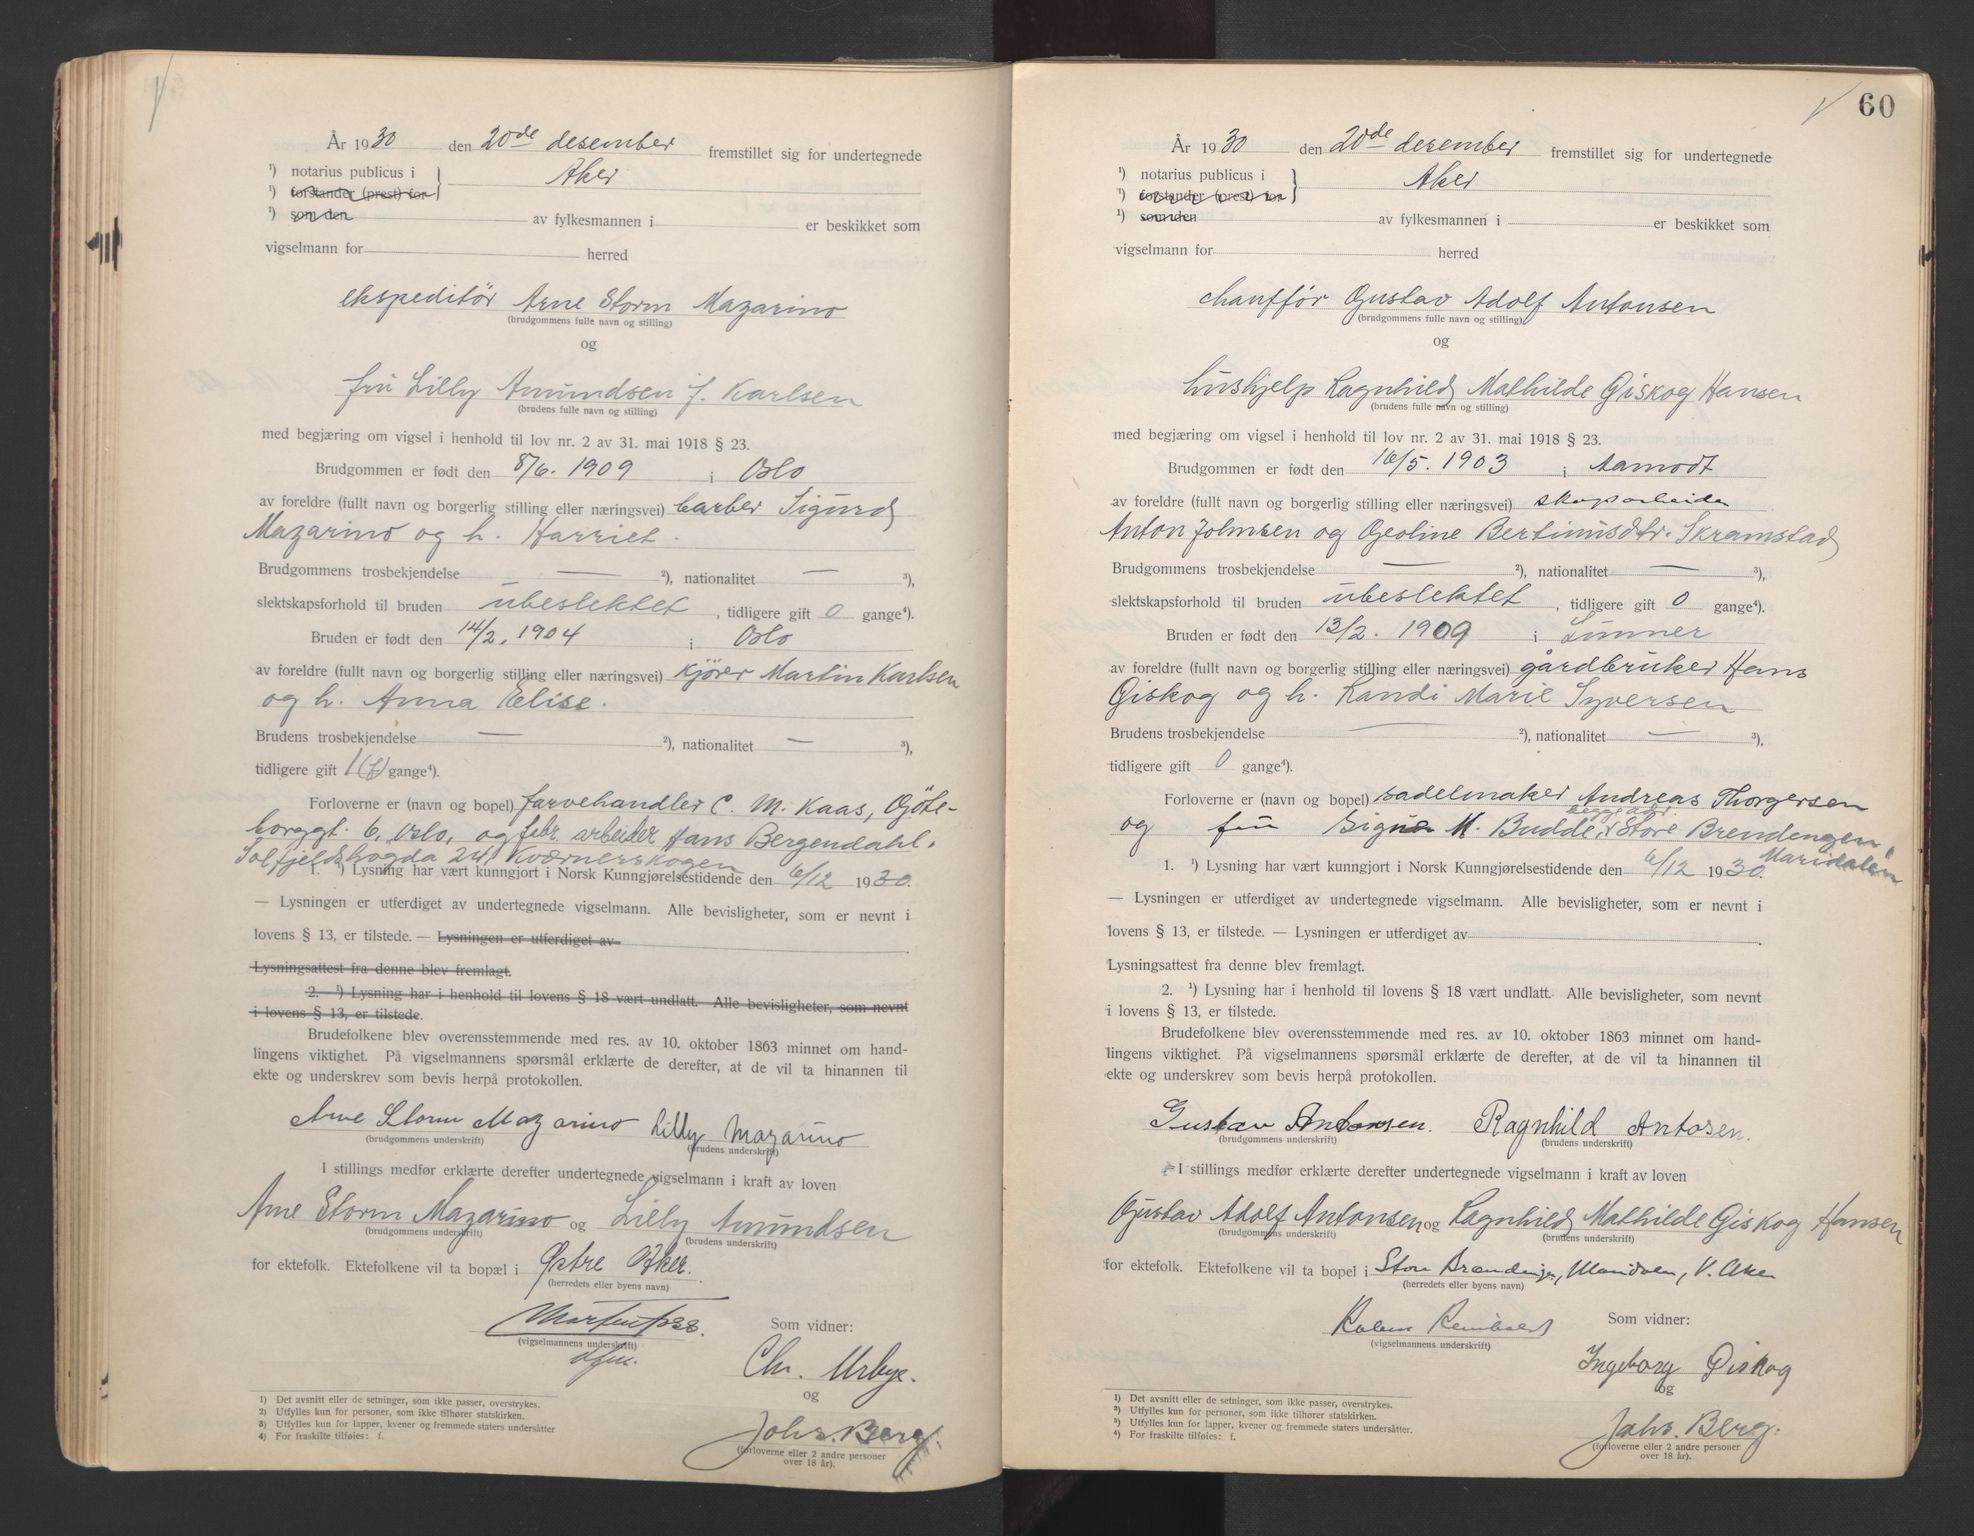 År 1930 den 20de desember fremstillet sig for undertegnede
¹) notarius publicus i Aker
¹) forstander (prest) for
¹) som den av fylkesmannen i er beskikket som
vigselmann for herred
ekspeditör Arne Storm Mazarino
(brudgommens fulle navn og stilling)
og
fru Lilly Amundsen f. Karlsen
(brudens fulle navn og stilling)
med begjæring om vigsel i henhold til lov nr. 2 av 31. mai 1918 § 23.
Brudgommen er født den 8/6. 1909 i Oslo
av foreldre (fullt navn og borgerlig stilling eller næringsvei) barber Sigurd
Mazarino og h. Harriet.
Brudgommens trosbekjendelse — ²), nationalitet — ³),
slektskapsforhold til bruden ubeslektet, tidligere gift 0 gange⁴).
Bruden er født den 14/2. 1904 i Oslo
av foreldre (fullt navn og borgerlig stilling eller næringsvei) kjører Martin Karlsen
og h. Anna Elise.
Brudens trosbekjendelse — ²), nationalitet — ³),
tidligere gift 1 (f) gange⁴).
Forloverne er (navn og bopel) farvehandler C. M. Kaas, Göte-
borggt. 6, Oslo, og fabr. arbeider Hans Bergendahl,
Solfjeldshogda 24, Kværnerskogen
1. ¹) Lysning har vært kunngjort i Norsk Kunngjørelsestidende den 6/12 1930.
— Lysningen er utferdiget av undertegnede vigselmann. Alle bevisligheter, som er nevnt i
lovens § 13, er tilstede. — Lysningen er utferdiget av
Lysningsattest fra denne blev fremlagt.
2. ¹) Lysning har i henhold til lovens § 18 vært undlatt. Alle bevisligheter, som nevnt
i lovens § 13, er tilstede.
Brudefolkene blev overensstemmende med res. av 10. oktober 1863 minnet om hand-
lingens viktighet. På vigselmannens spørsmål erklærte de derefter, at de vil ta hinannen til
ekte og underskrev som bevis herpå protokollen.
Arne Storm Mazarino Lilly Mazarino
(brudgommens underskrift) (brudens underskrift)
I stillings medfør erklærte derefter undertegnede vigselmann i kraft av loven
Arne Storm Mazarino og Lilly Amundsen
(brudgommens underskrift) (brudens underskrift)
for ektefolk. Ektefolkene vil ta bopæl i Østre Aker.
(herredets eller byens navn)
Som vidner:
(vigselmannens underskrift)
Chr. Urbye.
og
Johs. Berg.
(forloverne eller 2 andre personer
over 18 år).
1) Det avsnitt eller de setninger, som ikke passer, overstrykes.
2) Utfylles kun for personer, som ikke tilhører statskirken.
3) Utfylles kun for lapper, kvener og fremmede staters undersåtter
4) For fraskilte tilføies: f.
60
År 1930 den 20de desember fremstillet sig for undertegnede
¹) notarius publicus i Aker
¹) forstander (prest) for
¹) som den av fylkesmannen i er beskikket som
vigselmann for herred
chaufför Gustav Adolf Antonsen
(brudgommens fulle navn og stilling)
og
hushjelp Ragnhild Mathilde Giskog Hansen
(brudens fulle navn og stilling)
med begjæring om vigsel i henhold til lov nr. 2 av 31. mai 1918 § 23.
Brudgommen er født den 16/5. 1903 i Aamodt
av foreldre (fullt navn og borgerlig stilling eller næringsvei) skogsarbeider
Anton Johnsen og Oeoline Bertinusdtr. Skramstad
Brudgommens trosbekjendelse — ²), nationalitet — ³),
slektskapsforhold til bruden ubeslektet, tidligere gift 0 gange⁴).
Bruden er født den 13/2. 1909 i Lunner
av foreldre (fullt navn og borgerlig stilling eller næringsvei) gårdbruker Hans
Giskog og h. Randi Marie Syversen
Brudens trosbekjendelse — ²), nationalitet — ³),
tidligere gift 0 gange⁴).
Forloverne er (navn og bopel) sadelmaker Andreas Thorgersen
og fru Signe M. Budde, begge adr. Store Brendengen,
Maridalen
1. ¹) Lysning har vært kunngjort i Norsk Kunngjørelsestidende den 6/12 1930.
— Lysningen er utferdiget av undertegnede vigselmann. Alle bevisligheter, som er nevnt i
lovens § 13, er tilstede. — Lysningen er utferdiget av
Lysningsattest fra denne blev fremlagt.
2. ¹) Lysning har i henhold til lovens § 18 vært undlatt. Alle bevisligheter, som nevnt
i lovens § 13, er tilstede.
Brudefolkene blev overensstemmende med res. av 10. oktober 1863 minnet om hand-
lingens viktighet. På vigselmannens spørsmål erklærte de derefter, at de vil ta hinannen til
ekte og underskrev som bevis herpå protokollen.
Gustav Antonsen. Ragnhild Antosen.
(brudgommens underskrift) (brudens underskrift)
I stillings medfør erklærte derefter undertegnede vigselmann i kraft av loven
Gustav Adolf Antonsen og Ragnhild Mathilde Giskog Hansen
(brudgommens underskrift) (brudens underskrift)
for ektefolk. Ektefolkene vil ta bopel i Store Brendengen, Maridalen, V. Aker
(herredets eller byens navn)
Som vidner:
(vigselmannens underskrift)
Ingeborg Giskog
og
Johs. Berg.
(forloverne eller 2 andre personer
over 18 år).
1) Det avsnitt eller de setninger, som ikke passer, overstrykes.
2) Utfylles kun for personer, som ikke tilhører statskirken.
3) Utfylles kun for lapper, kvener og fremmede staters undersåtter.
4) For fraskilte tilføies: f.